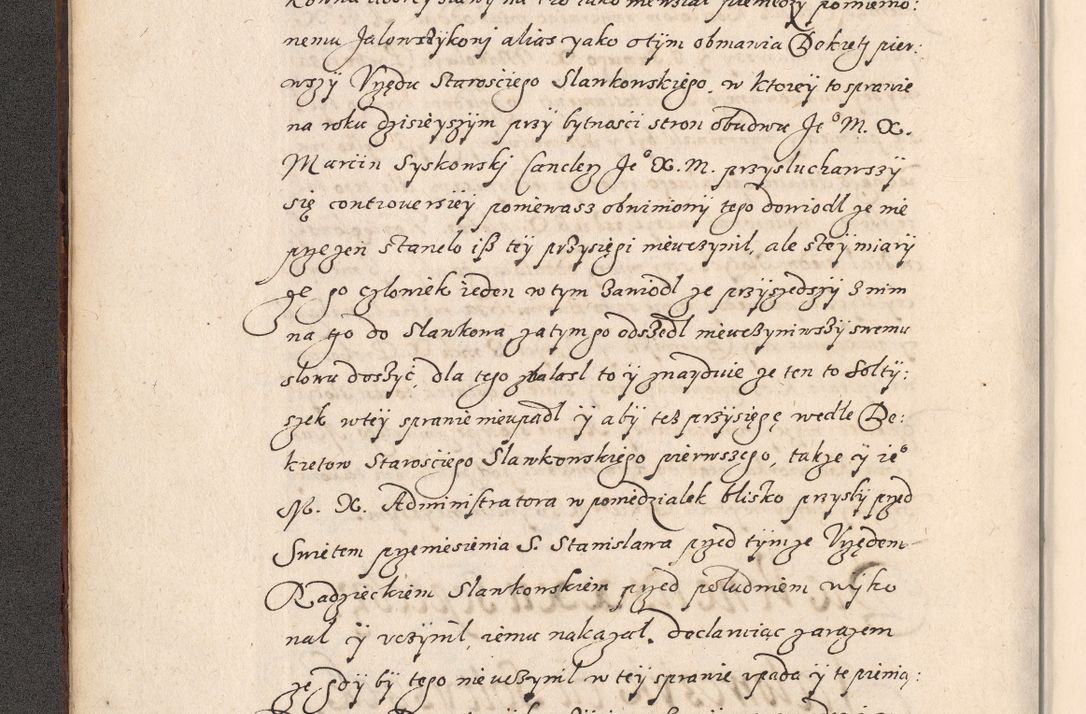 nemu Jalowszykoni alias yako o tym obmawia Dekret pier:
wszy Vrzędu Starosciego Slawkowskiego, w ktorey to sprawie
na roku dzisieyszym przy bytnosci stron obudwu Je° M. X.
Marcin Syskowski Canclerz Je° X. M. przysluchawszy
się controuersiey poniewasz obwiniony tego dowiodl ze nie
przezen stanelo isz tey przysięgi nieuczynil, ale stey miary
ze go czlowiek ieden w tym zawiodl ze przyszedszy z nim
na to do Slawkowa zatym go odszedl nieuczyniwszy swemu
slowu doszyc, dla tego znalasl to y znayduie ze ten to Solty:
szek w tey sprawie nieupadl y aby tesz przysięgę wedle De:
kretow Starosciego Slawkowskiego pierwszego, takze y ie°
M. X. Administratora w poniedzialek blisko przysly przed
Swietem przeniesienia S. Stanislawa przed tymze Vrzędem
Radzieckiem Slawkowskiem przed poludniem wyko
nal y vczynil, iemu nakazal. Doclaruiąc zarazem
ze gdy by tego nieuczynil w tey sprawie vpada y te pienią: